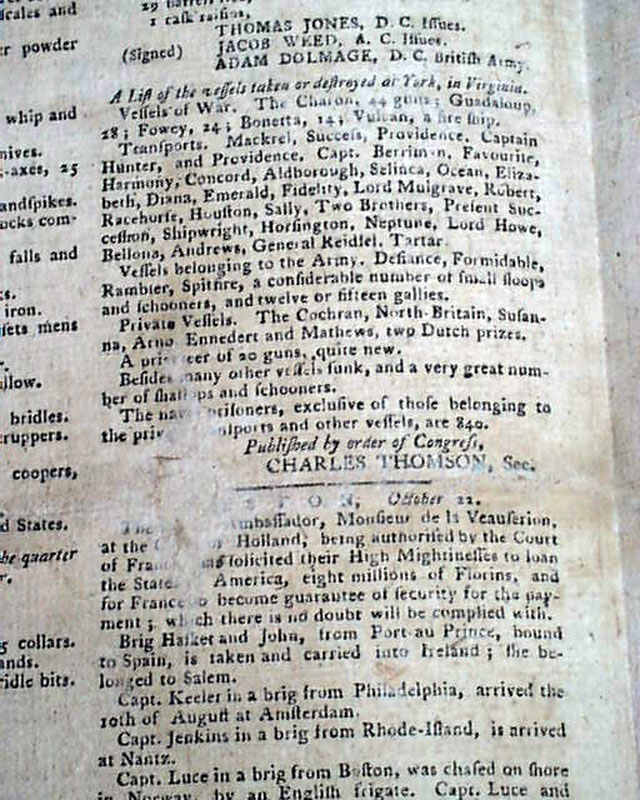 scales and
er powder
whip and
nives.
-axes, 25
andspikes.
ocks com-
falls and
s.
iron.
sets mens
llow.
bridles.
cruppers.
coopers,
d States.
he quarter
r.
g collars.
ands.
ridle bits.
29 barrels
1 cask raisins,
THOMAS JONES, D. C. Iſſues.
(Signed) JACOB WEED, A. C. Iſſues.
ADAM DOLMAGE, D. C. Britiſh Army.
A Liſt of the veſſels taken or deſtroyed at York, in Virginia.
Veſſels of War. The Charon, 44 guns; Guadaloup,
28; Fowey, 24; Bonetta, 14; Vulcan, a fire ſhip.
Tranſports. Mackrel, Succeſs, Providence, Captain
Hunter, and Providence, Capt. Berriman, Favourite,
Harmony, Concord, Aldborough, Selinca, Ocean, Eliza-
beth, Diana, Emerald, Fidelity, Lord Mulgrave, Robert,
Racehorſe, Houſton, Sally, Two Brothers, Preſent Suc-
ceſſion, Shipwright, Horſington, Neptune, Lord Howe,
Bellona, Andrews, General Reidſel, Tartar.
Veſſels belonging to the Army. Defiance, Formidable,
Rambler, Spitfire, a conſiderable number of ſmall ſloops
and ſchooners, and twelve or fifteen gallies.
Private Veſſels. The Cochran, North-Britain, Suſan-
na, Arno Ennedert and Mathews, two Dutch prizes.
A pri eer of 20 guns, quite new.
Beſides many other veſſels ſunk, and a very great num-
ber of ſhallops and ſchooners.
The nav priſoners, excluſive of thoſe belonging to
the priv nſports and other veſſels, are 840.
Publiſhed by order of Congreſs,
CHARLES THOMSON, Sec.
S T O N, October 22.
The mbaſſador, Monſieur de la Veauferion,
at the of Holland, being authoriſed by the Court
of France has ſolicited their High Mightineſſes to loan
the State America, eight millions of Florins, and
for France to become guarantee of ſecurity for the pay-
ment; which there is no doubt will be complied with.
Brig Haſket and John, from Port-au Prince, bound
to Spain, is taken and carried into Ireland; ſhe be-
longed to Salem.
Capt. Keeler in a brig from Philadelphia, arrived the
10th of Auguſt at Amſterdam.
Capt. Jenkins in a brig from Rhode-Iſland, is arrived
at Nantz.
Capt. Luce in a brig from Boſton, was chaſed on ſhore
in Norway, by an Engliſh frigate. Capt. Luce and